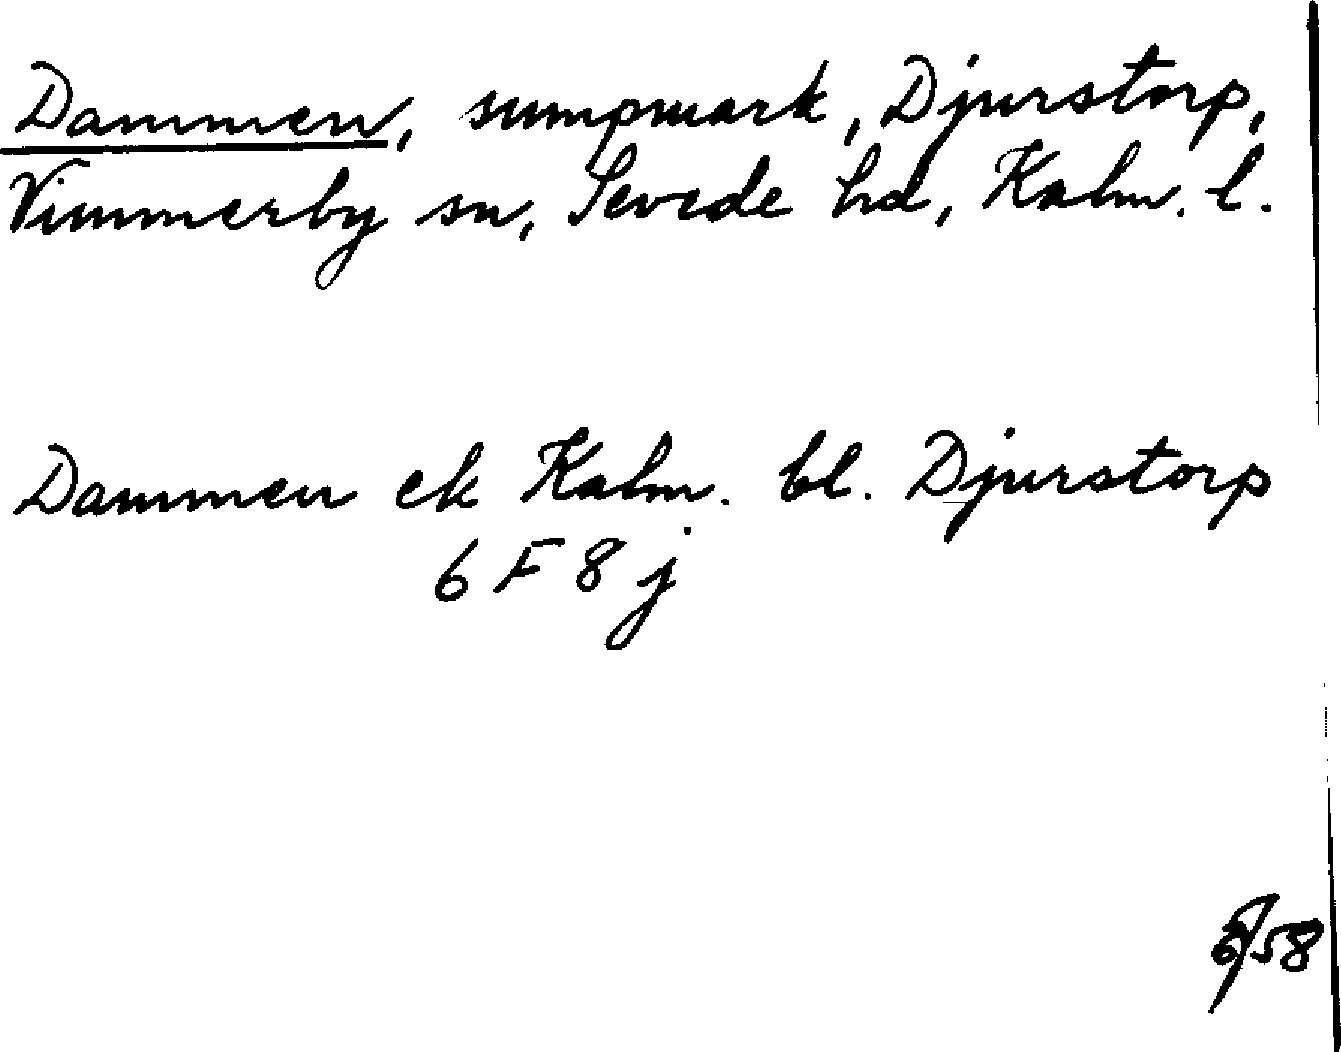 Dammen, sumpmark, Djurstorp,
Vimmerby sn, Sevede hd, Kalm. l.
Dammen ek Kalm. bl. Djurstorp
6 F 8 j